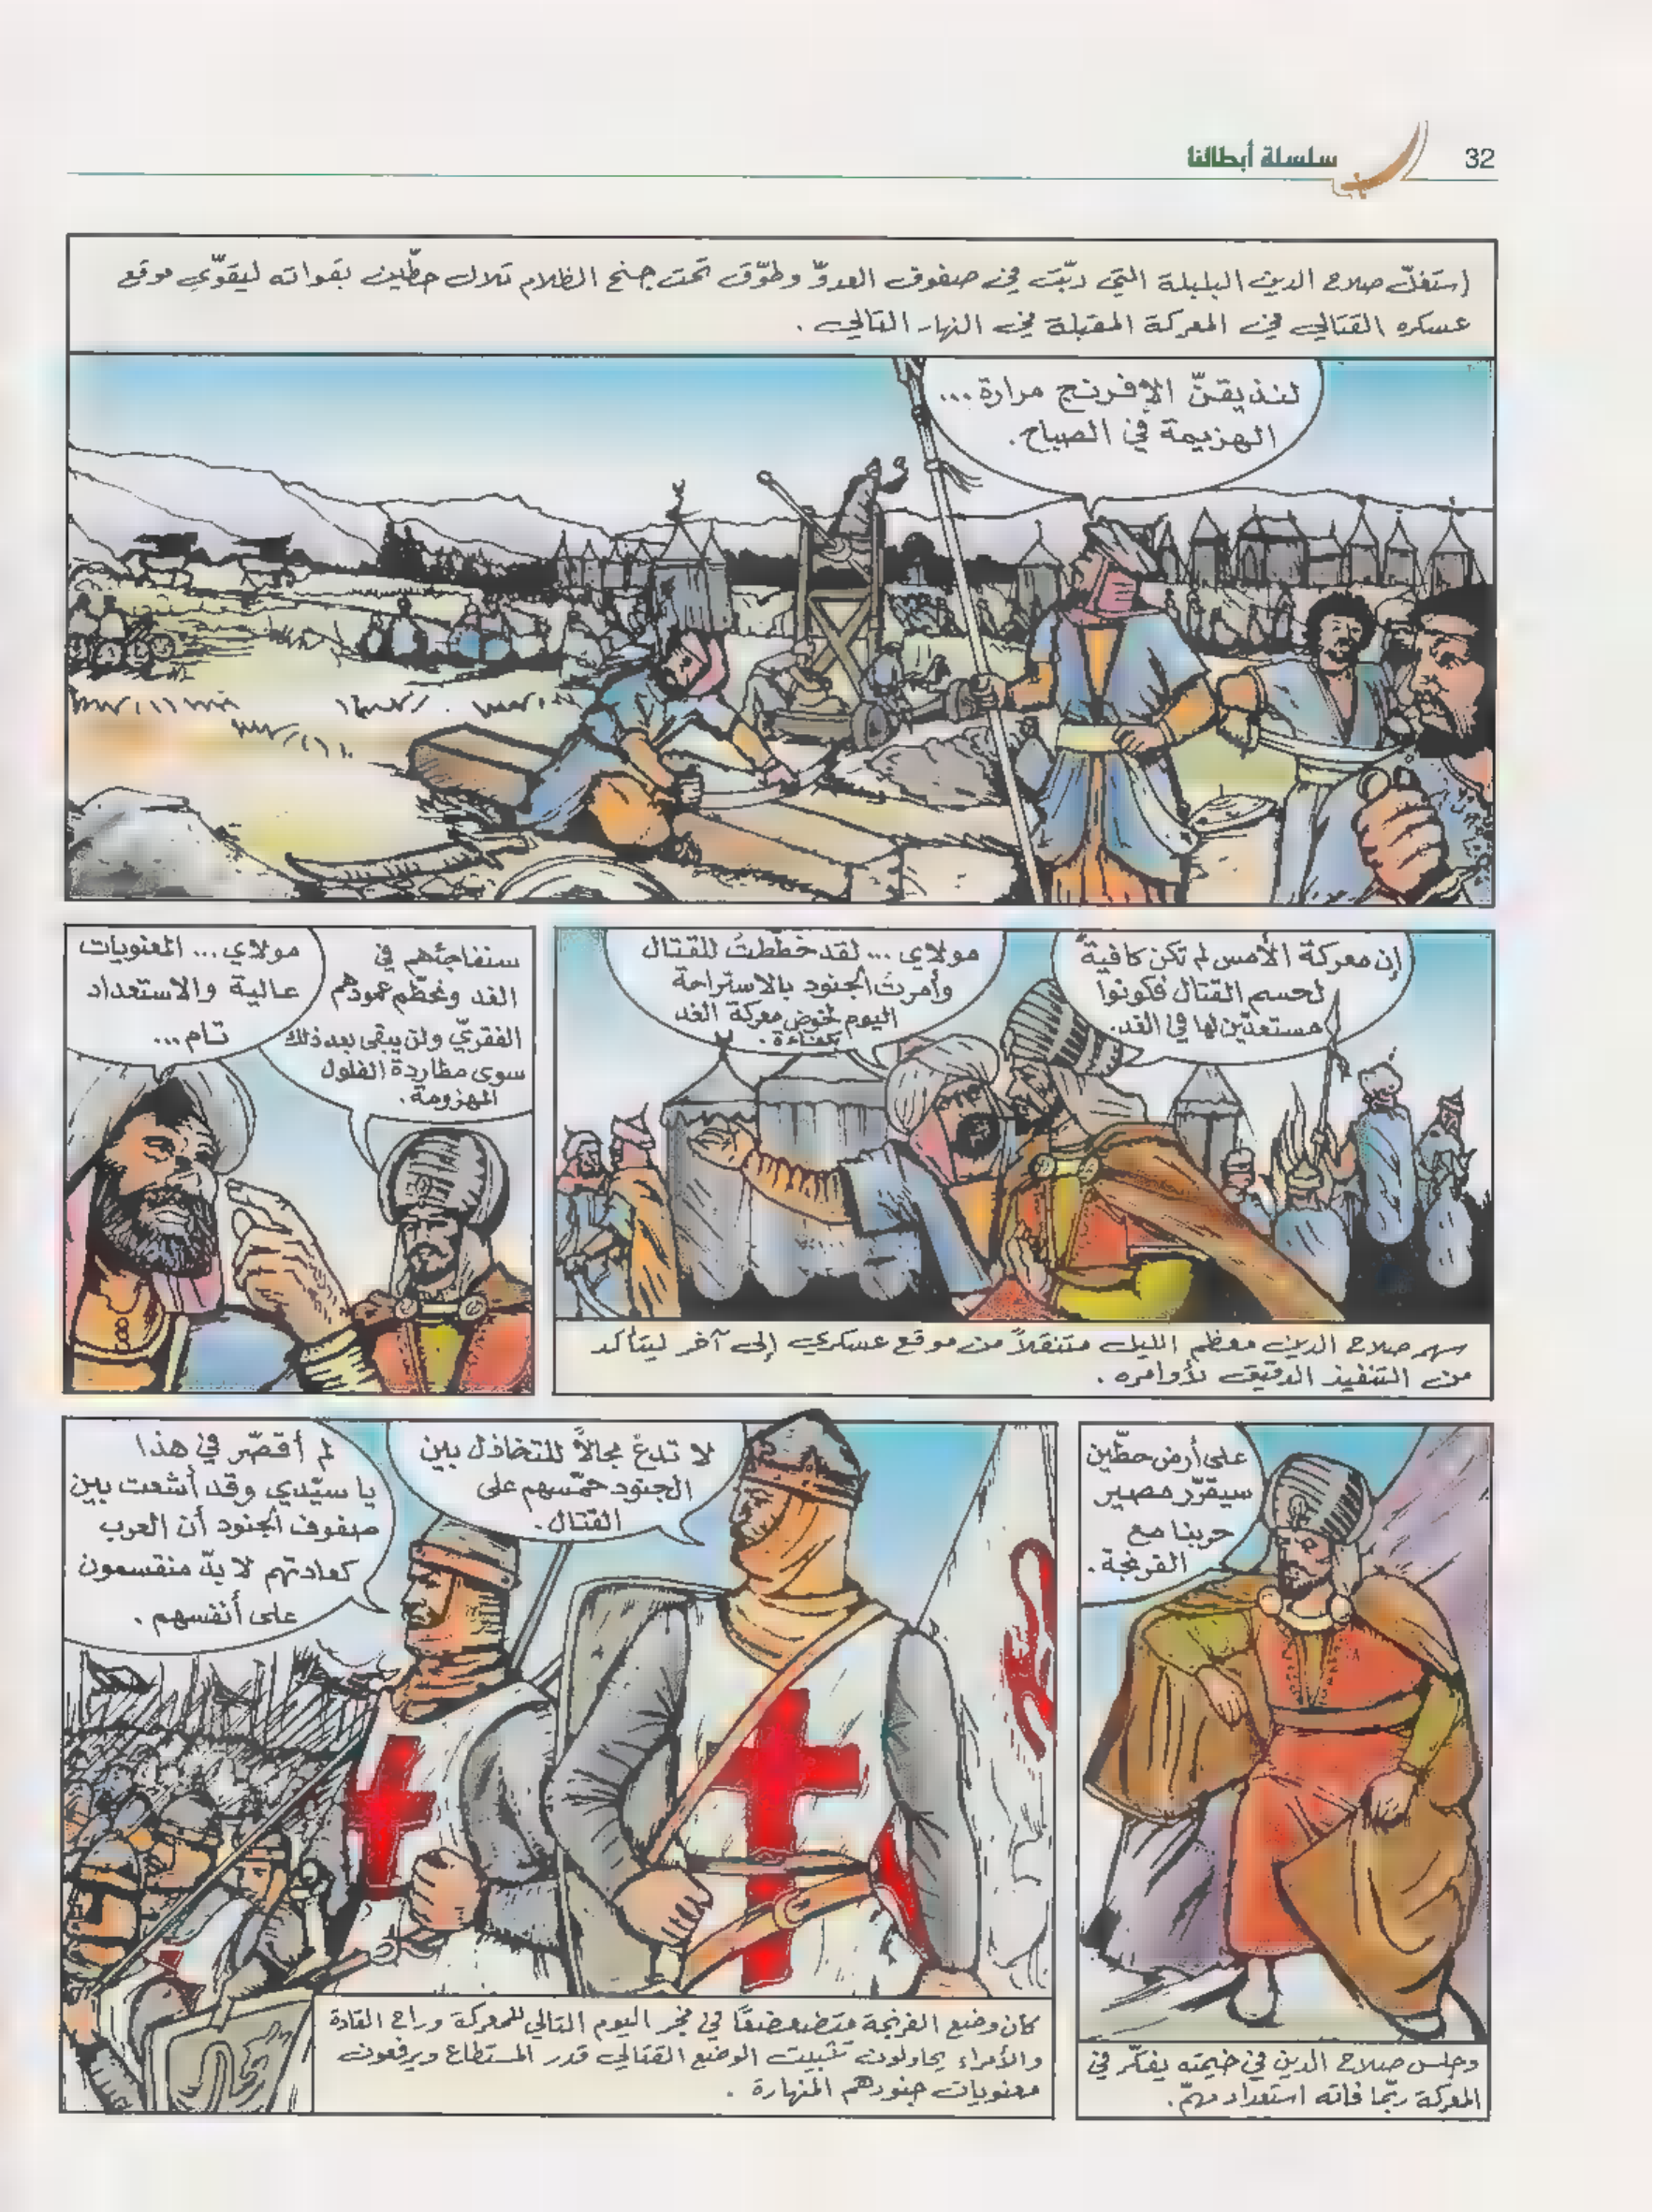 32
سلسلة أبطالنا
إستغلّ صلاح الدين البلبلة التي دبّت في صفوف العدوّ وطوّق تحت جنح الظلام تلال حطّين بقواته ليقوّي موقع
عسكره القتالي في المعركة المقبلة في النهار التالي .
لنذيقنّ الإفرنج مرارة...
الهزيمة في الصباح.
إن معركة الأمس لم تكن كافية
لحسم القتال فكونوا
مستعدّين لها في الغد.
مولاي ... لقد خططتُ للقتال
وأمرتُ الجنود بالاستراحة
اليوم لخوض معركة الغد
بكفاءة .
سهر صلاح الدين معظم الليل متنقلاً من موقع عسكري إلى آخر ليتأكد
من التنفيذ الدقيق لأوامره .
سنفاجئهم في
الغد ونحطّم عمودهم
الفقريّ ولن يبقى بعد ذلك
سوى مطاردة الفلول
المهزومة.
مولاي... المعنويات
عالية والاستعداد
تام...
على أرض حطّين
سيقرّر مصير
حربنا مع
الفرنجة.
وجلس صلاح الدين في خيمته يفكّر في
المعركة ربّما فاته استعداد مهمّ.
لا تدعْ مجالاً للتخاذل بين
الجنود حمّسهم على
القتال.
لم أقصّر في هذا
يا سيّدي وقد أشعت بين
صفوف الجنود أن العرب
كعادتهم لا بدّ منقسمون
على أنفسهم .
كان وضع الفرنجة متضعضعًا في فجر اليوم التالي للمعركة وراح القادة
والأمراء يحاولون تثبيت الوضع القتالي قدر المستطاع ويرفعون
معنويات جنودهم المنهارة .